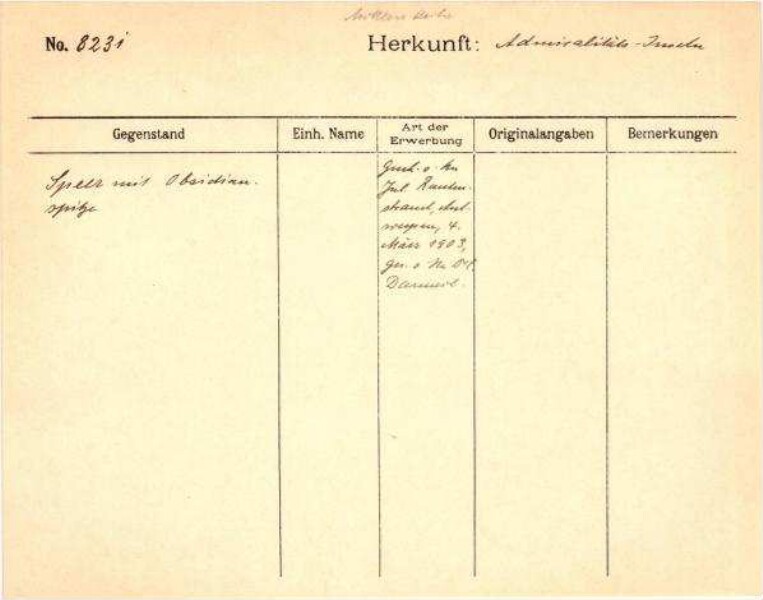 No. 8231
Herkunft: Admiralitäts-Inseln
Gegenstand
Einh. Name
Art der Erwerbung
Originalangaben
Bemerkungen
Speer mit Obsidian-
spitze
Jul. Rauten-
strauch, Ant-
werpen, 4.
März 1903,